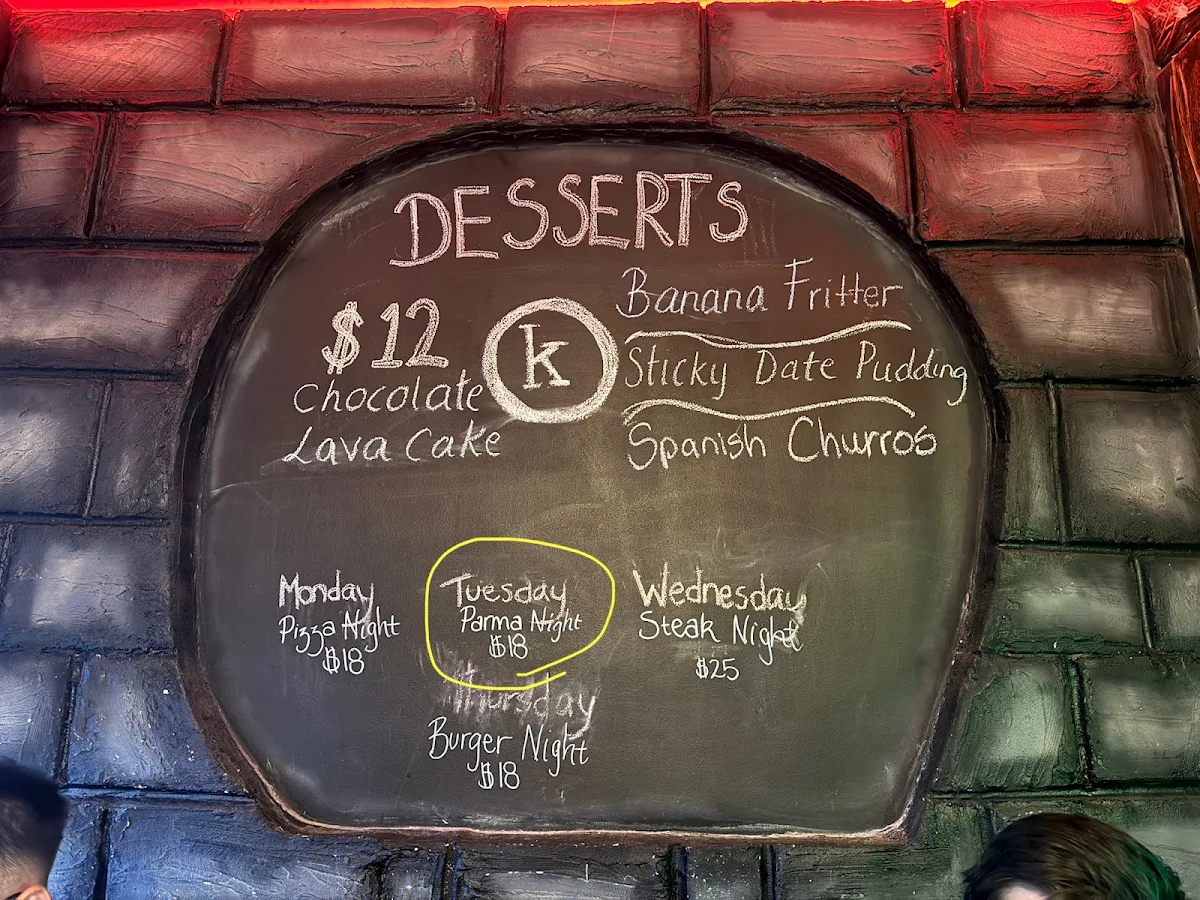 DESSERTS
$12
Chocolate
Lava Cake
k
Banana Fritter
Sticky Date Pudding
Spanish Churros
Monday
Pizza Night
$18
Tuesday
Parma Night
$18
Wednesday
Steak Night
$25
Thursday
Burger Night
$18